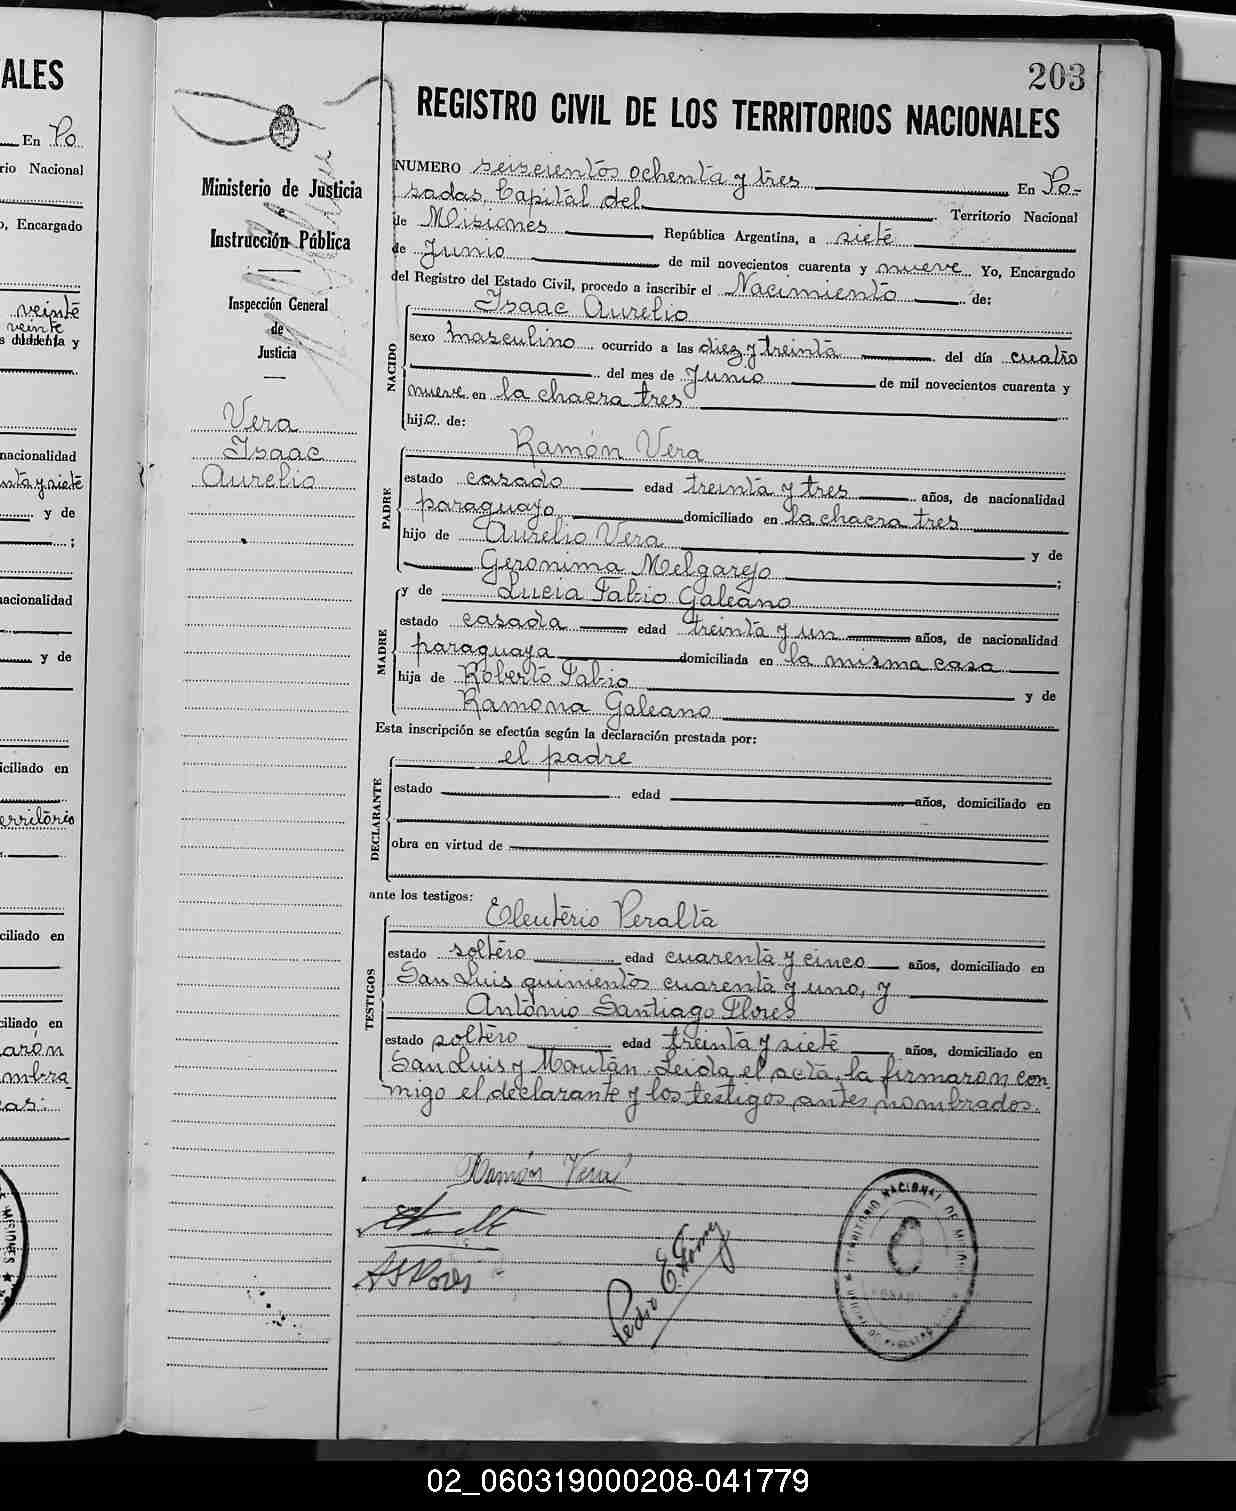 203
REGISTRO CIVIL DE LOS TERRITORIOS NACIONALES
Ministerio de Justicia
e
Instrucción Pública
Inspección General
de
Justicia
Vera
Isaac
Aurelio
NUMERO seiscientos ochenta y tres En Po-
sadas, Capital del Territorio Nacional
de Misiones República Argentina, a siete
de Junio de mil novecientos cuarenta y nueve Yo, Encargado
del Registro del Estado Civil, procedo a inscribir el Nacimiento de:
NACIDO
Isaac Aurelio
sexo masculino ocurrido a las diez y treinta del día cuatro
del mes de Junio de mil novecientos cuarenta y
nueve en la chacra tres
hijo de:
PADRE
Ramón Vera
estado casado edad treinta y tres años, de nacionalidad
paraguayo domiciliado en la chacra tres
hijo de Aurelio Vera y de
Geronima Melgarejo ;
MADRE
y de Lucia Fabio Galeano
estado casada edad treinta y un años, de nacionalidad
paraguaya domiciliada en la misma casa
hija de Roberto Fabio y de
Ramona Galeano
Esta inscripción se efectúa según la declaración prestada por:
DECLARANTE
el padre
estado edad años, domiciliado en
obra en virtud de
ante los testigos:
TESTIGOS
Eleuterio Peralta
estado soltero edad cuarenta y cinco años, domiciliado en
San Luis quinientos cuarenta y uno, y
Antonio Santiago Flores
estado soltero edad treinta y siete años, domiciliado en
San Luis y Moritán. Leida el acta, la firmaron con-
migo el declarante y los testigos antes nombrados.
Ramón Vera
Pedro E. Gómez
TERRITORIO NACIONAL DE MISIONES
ALES
En Po
rio Nacional
o, Encargado
veinte
veinte
s y
nacionalidad
nta y siete
y de
;
nacionalidad
y de
iciliado en
erritorio
ciliado en
ciliado en
aron
mbra
as.
MISIONES
02_060319000208-041779